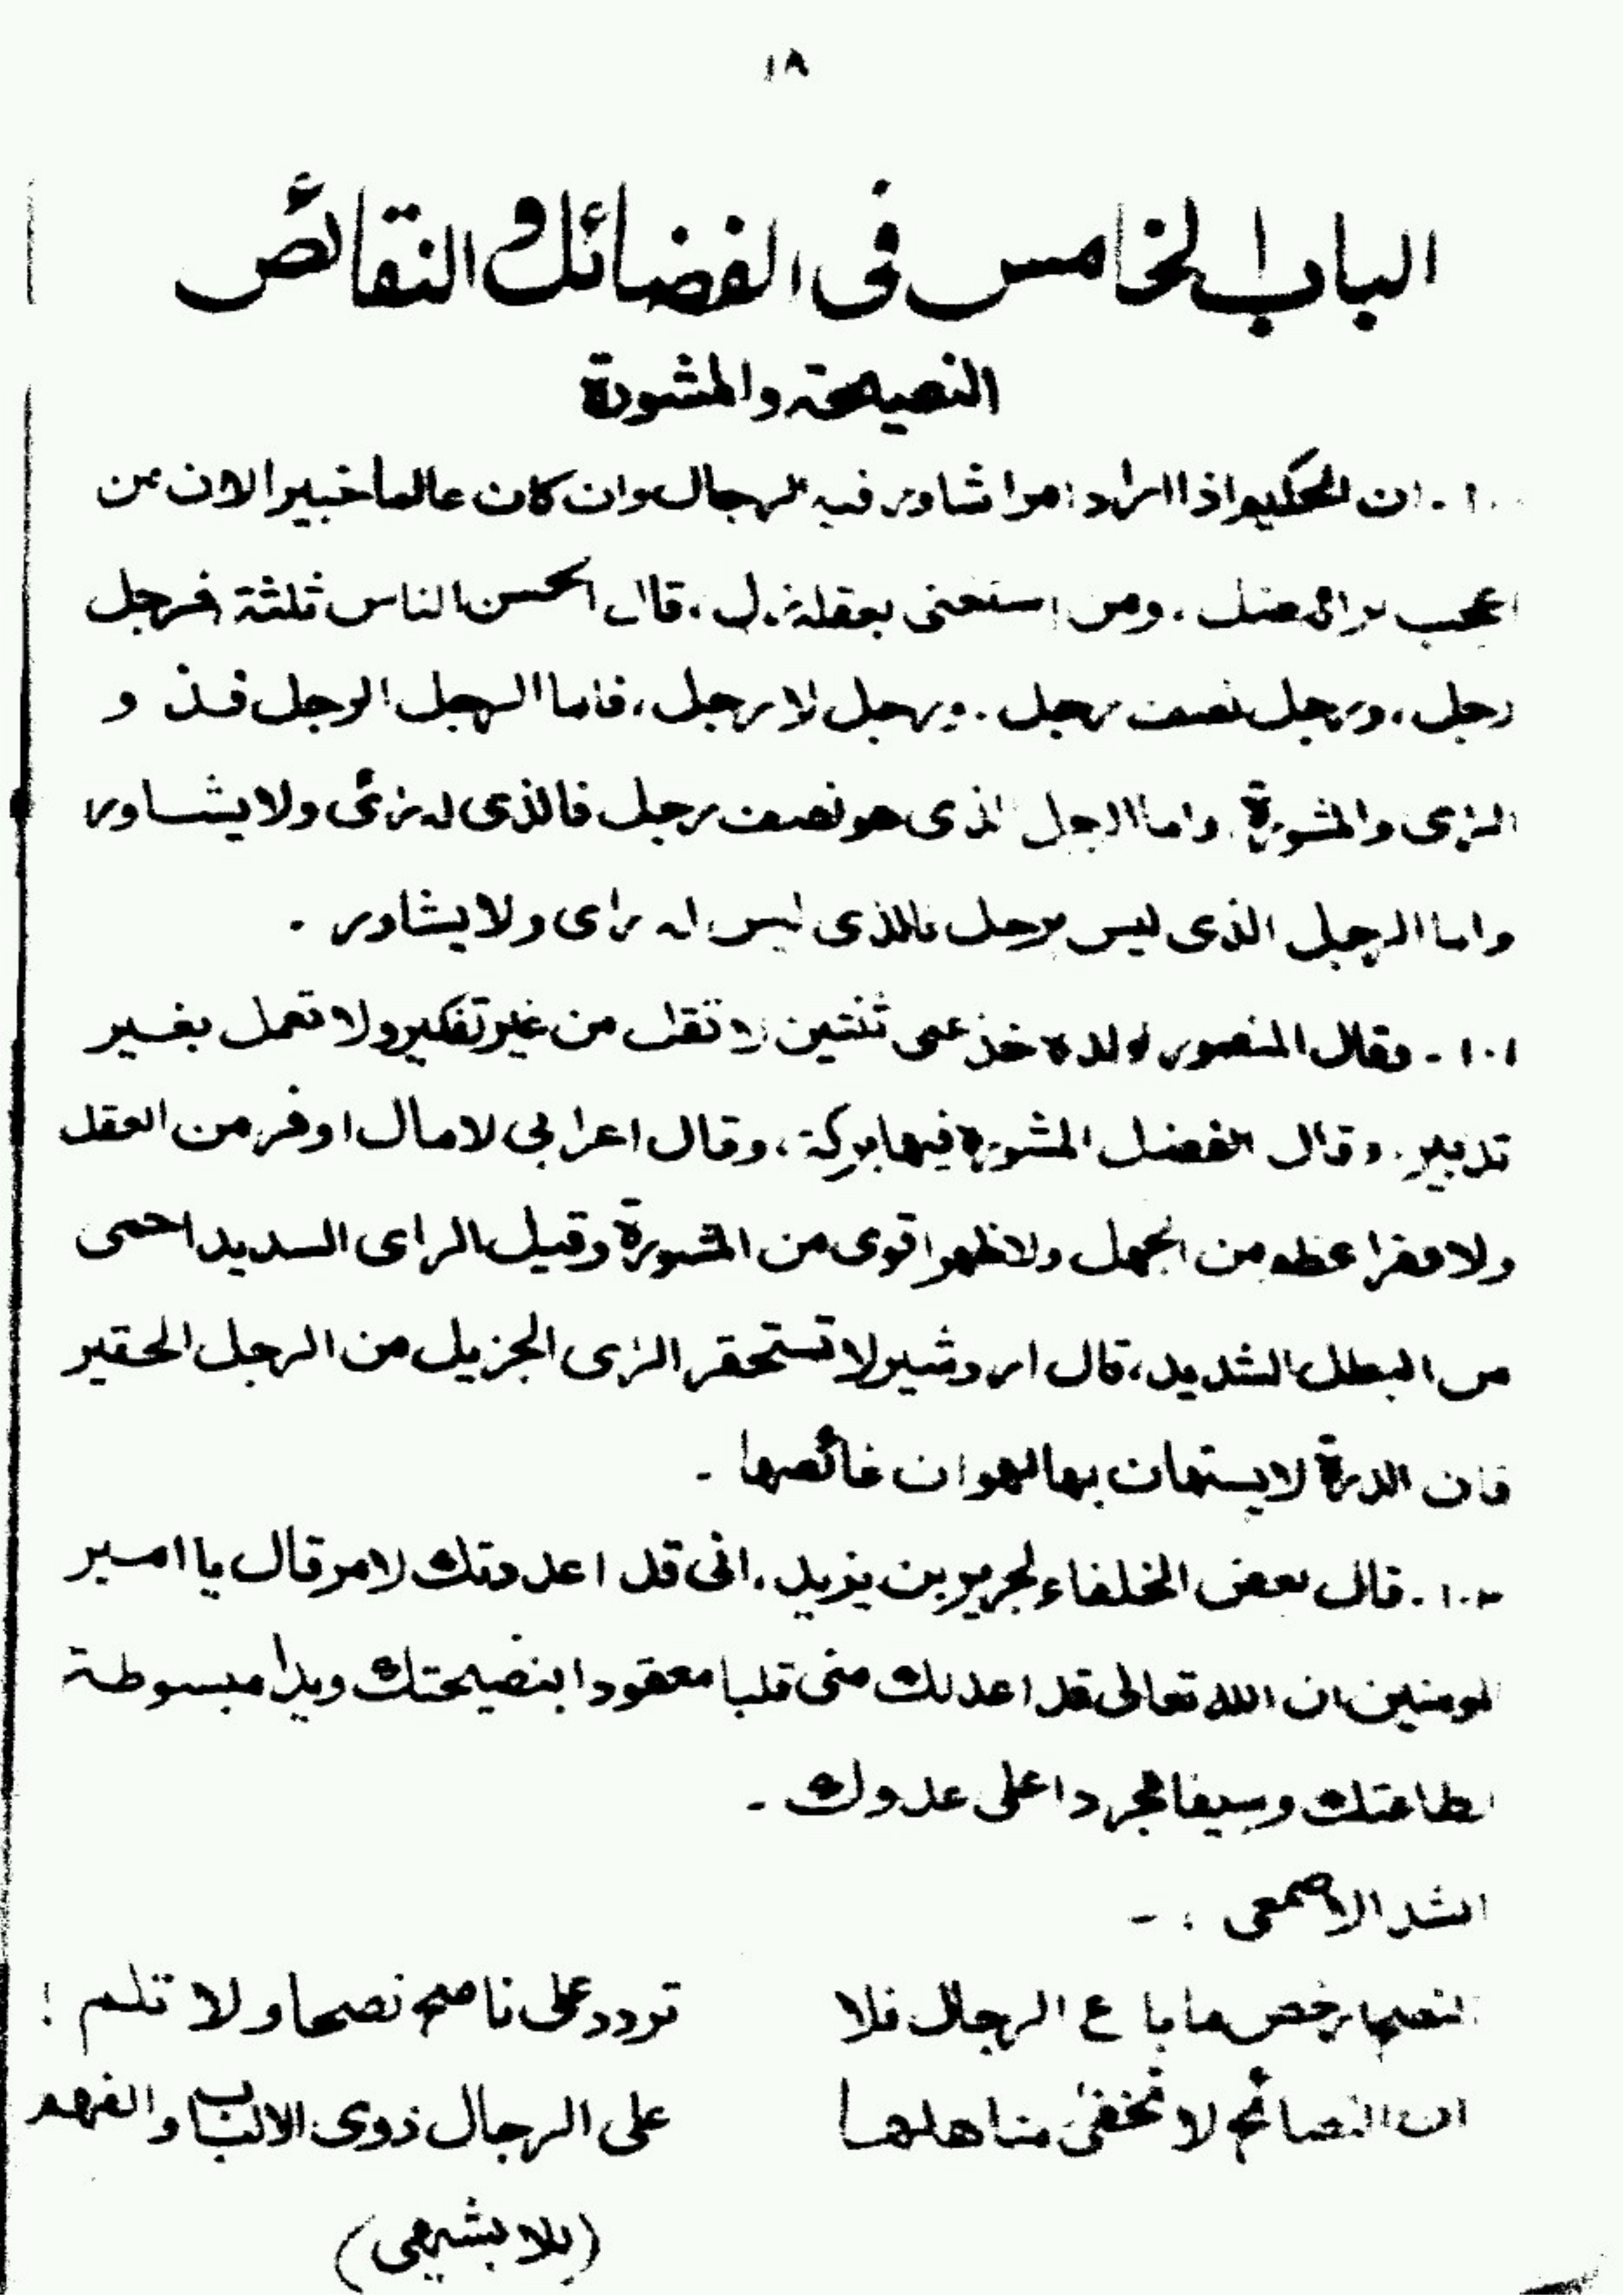 ١٨
الباب الخامس فى الفضائل و النقائص
النصيحة والمشورة
ان الحكيم اذا اراد امرا شاور فيه الرجال وان كان عالما خبيرا لان من
اعجب برائ ضل . ومن استغنى بعقله زل . قال الحسن الناس ثلثة فرجل
رجل ، ورجل نصف رجل . ورجل لا رجل ، فاما الرجل الرجل فذ و
الرئى والمشورة . واما الرجل الذى هو نصف رجل فالذى له رائى ولا يشاور
واما الرجل الذى ليس برجل فالذى ليس له راى ولا يشاور .
١٠١ - وقال المنصور لولده خذ عنى ثنتين لا تقل من غير تفكير ولا تعمل بغير
تدبير . وقال الفضل المشورة فيها بركة ، وقال اعرابى لا مال اوفر من العقل
ولا فقرا عظم من الجهل ولا ظهرا قوى من المشورة وقيل الراى السديد احمى
من البطل الشديد ، قال اردشير لا تستحقر الرئى الجزيل من الرجل الحقير
فان الدرة لا يستهان بها لهوان غائصها -
١٠٢ - قال بعض الخلفاء لجرير بن يزيد . انى قد اعددتك لامر قال يا امير
المومنين ان الله تعالى قد اعد لك منى قلبا معقودا بنصيحتك ويدا مبسوطة
لطاعتك وسيفا مجردا على عدوك -
انشد الاصمعى : -
النصح ارخص ما باع الرجال فلا تردد على ناصح نصحا ولا تلم !
ان النصائح لا تخفى مناهلها على الرجال ذوى الالباب والفهم
(للابشيهى)